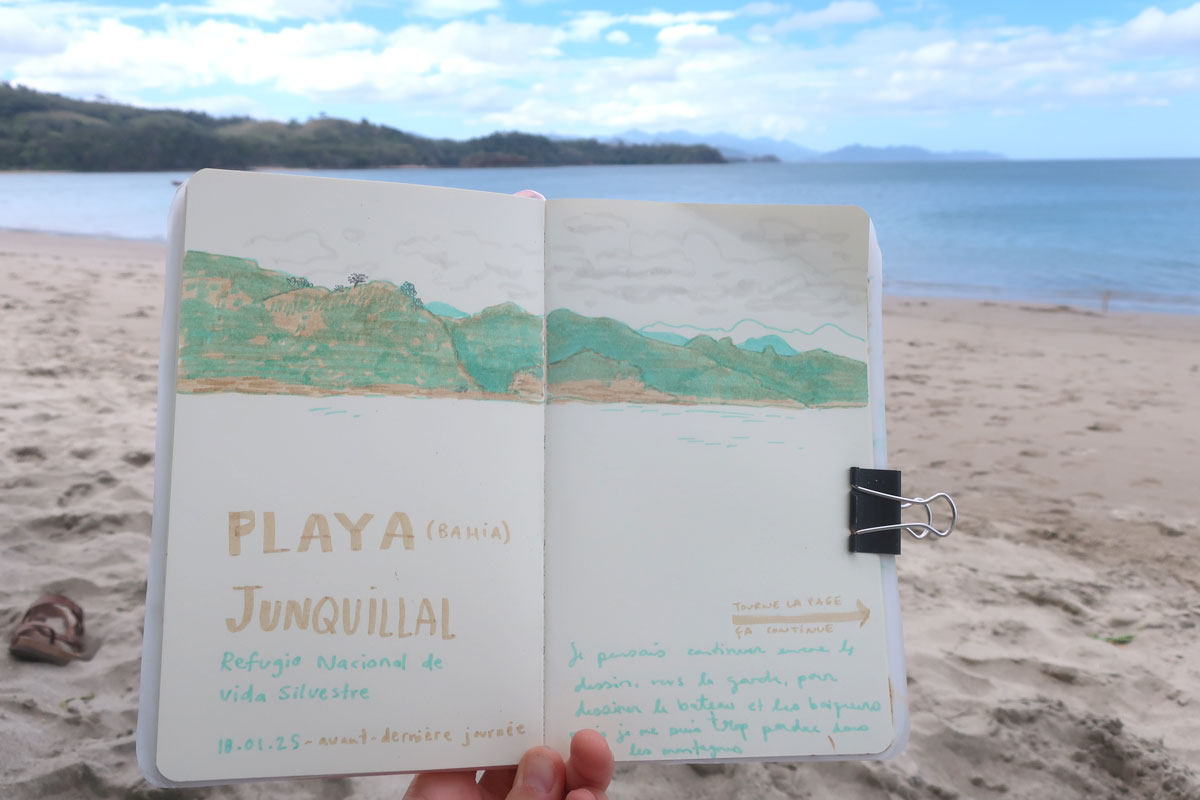 PLAYA (BAHiA)
JUNQUiLLAL
Refugio Nacional de
vida Silvestre
18.01.25 ~ avant-dernière journée
TOURNE LA PAGE
ÇA CONTINUE
Je pensais continuer encore le
dessin, vers la gauche, pour
dessiner le bateau et les baigneurs
mais je me suis trop perdue dans
les montagnes